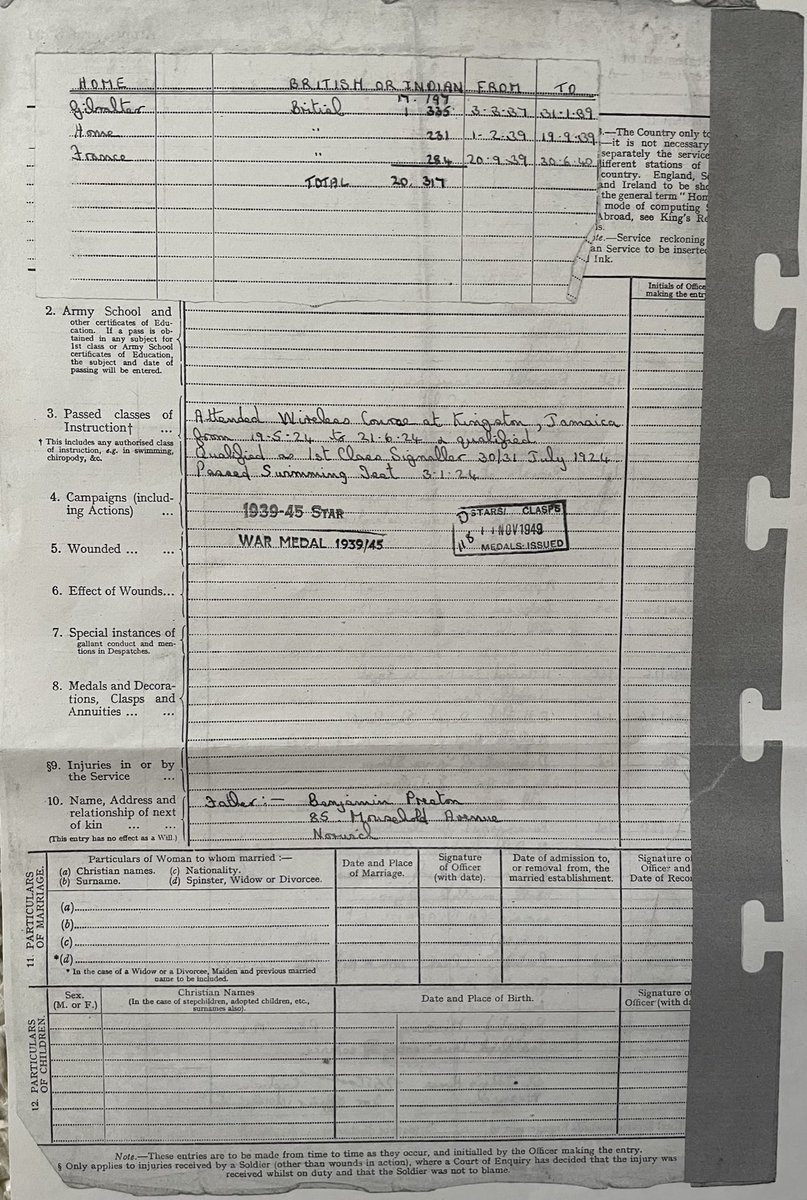 HOME BRITISH OR INDIAN FROM TO
17. 197
Gibralter British 1 335 3-3-37 31-1-39
Home " 231 1-2-39 19-9-39
France " 284 20-9-39 30-6-40
TOTAL 20. 317
.—The Country only to
—it is not necessary
separately the service
ifferent stations of
country. England, Sc
and Ireland to be sho
the general term " Hom
mode of computing S
Abroad, see King's Re
s.
te.—Service reckoning
an Service to be inserted
Ink.
Initials of Office
making the entry
2. Army School and
other certificates of Edu-
cation. If a pass is ob-
tained in any subject for
1st class or Army School
certificates of Education,
the subject and date of
passing will be entered.
3. Passed classes of
Instruction† ...
† This includes any authorised class
of instruction, e.g. in swimming,
chiropody, &c.
Attended Wireless Course at Kingston, Jamaica
from 19-5-24 to 21-6-24 & qualified
Qualified as 1st Class Signaller 30/31 July 1924
Passed Swimming Test 3-1-24
4. Campaigns (includ-
ing Actions) ...
1939-45 STAR
STARS/ CLASPS
11 NOV 1949
MEDALS ISSUED
5. Wounded ... ...
WAR MEDAL 1939/45
6. Effect of Wounds...
7. Special instances of
gallant conduct and men-
tions in Despatches.
8. Medals and Decora-
tions, Clasps and
Annuities ... ...
§9. Injuries in or by
the Service ...
10. Name, Address and
relationship of next
of kin ... ...
(This entry has no effect as a Will.)
Father :— Benjamin Preston
85. Mousehold Avenue
Norwich
11. PARTICULARS
OF MARRIAGE.
Particulars of Woman to whom married :—
(a) Christian names. (c) Nationality.
(b) Surname. (d) Spinster, Widow or Divorcee.
Date and Place
of Marriage.
Signature
of Officer
(with date).
Date of admission to,
or removal from, the
married establishment.
Signature of
Officer and
Date of Recor
(a)
(b)
(c)
*(d)
* In the case of a Widow or a Divorcee, Maiden and previous married
name to be included.
12. PARTICULARS
OF CHILDREN.
Sex.
(M. or F.)
Christian Names
(In the case of stepchildren, adopted children, etc.,
surnames also).
Date and Place of Birth.
Signature of
Officer (with da
Note.—These entries are to be made from time to time as they occur, and initialled by the Officer making the entry.
§ Only applies to injuries received by a Soldier (other than wounds in action), where a Court of Enquiry has decided that the injury was
received whilst on duty and that the Soldier was not to blame.